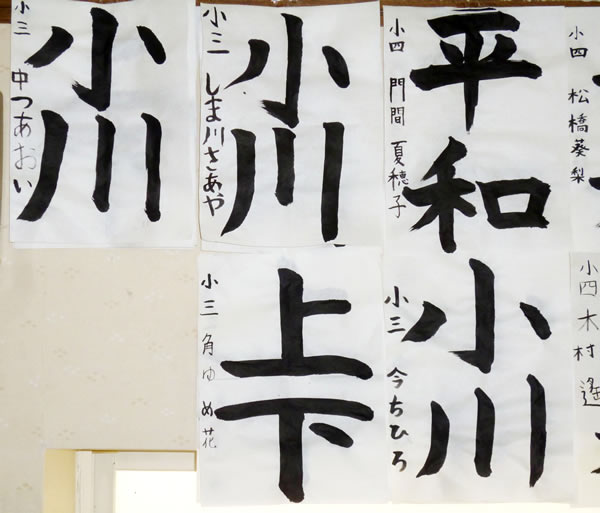 小川
小三 中つあおい
小川
小三 しま川さあや
平和
小四 門間夏穂子
小四 松橋葵梨
上下
小三 角ゆめ花
小川
小三 今ちひろ
小四 木村遥